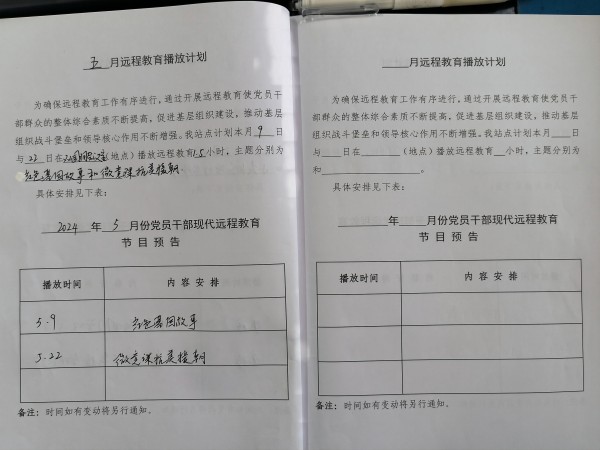 五月远程教育播放计划
为确保远程教育工作有序进行，通过开展远程教育使党员干
部群众的整体综合素质不断提高，促进基层组织建设，推动基层
组织战斗堡垒和领导核心作用不断增强。我站点计划本月9日
与22日在（地点）播放远程教育1.5小时，主题分别为
红色基因故事和微党课抗美援朝
具体安排见下表：
2024年5月份党员干部现代远程教育
节目预告
播放时间 内容安排
5.9 红色基因故事
5.22 微党课抗美援朝
备注：时间如有变动将另行通知。
____月远程教育播放计划
为确保远程教育工作有序进行，通过开展远程教育使党员干
部群众的整体综合素质不断提高，促进基层组织建设，推动基层
组织战斗堡垒和领导核心作用不断增强。我站点计划本月____日
与____日在________（地点）播放远程教育__小时，主题分别为
____和________________。
具体安排见下表：
______年____月份党员干部现代远程教育
节目预告
播放时间 内容安排
备注：时间如有变动将另行通知。